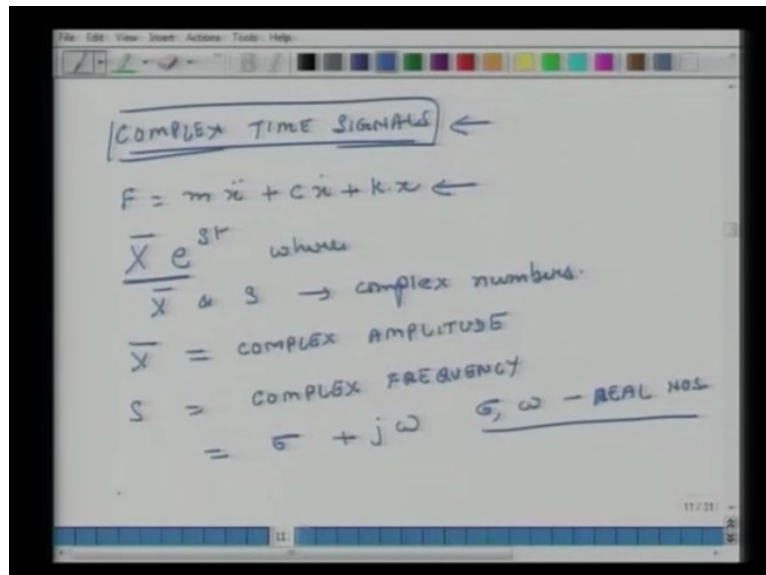 File Edit View Insert Actions Tools Help
COMPLEX TIME SIGNALS ←
F = mẍ + cẋ + k.x ←
X̄ e^st where
X̄ & S → complex numbers.
X̄ = COMPLEX AMPLITUDE
S = COMPLEX FREQUENCY
= σ + jω σ, ω - REAL NOS